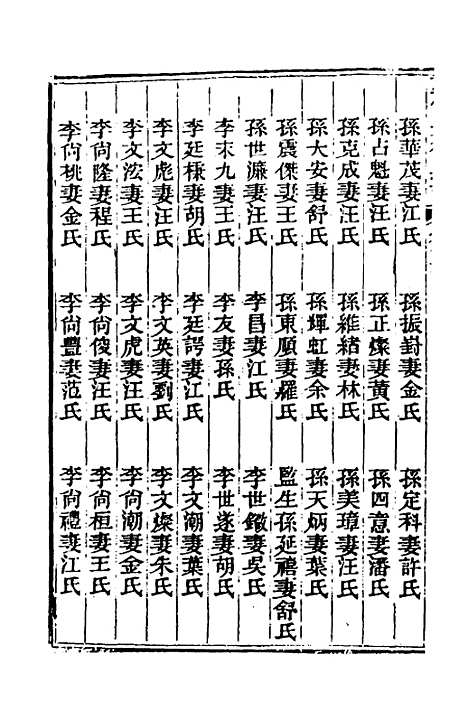 孫華茂妻江氏　孫振對妻金氏　孫定科妻許氏
孫占魁妻汪氏　孫正燦妻黃氏　孫四意妻潘氏
孫克成妻汪氏　孫維緒妻林氏　孫美璋妻汪氏
孫大安妻舒氏　孫輝虹妻余氏　孫天炳妻葉氏
孫震傑妻王氏　孫東順妻羅氏　監生孫延禧妻舒氏
孫世濂妻汪氏　李昌妻江氏　李世鐓妻吳氏
李末九妻王氏　李友妻孫氏　李世遂妻胡氏
李廷樣妻胡氏　李廷諤妻江氏　李文潮妻葉氏
李文彪妻汪氏　李文英妻劉氏　李文燦妻朱氏
李文浤妻王氏　李文虎妻汪氏　李尙潮妻金氏
李尙隆妻程氏　李尙俊妻汪氏　李尙桓妻王氏
李尙桃妻金氏　李尙豐妻范氏　李尙禮妻江氏